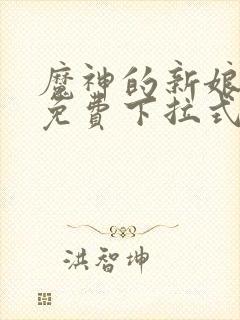 魔神的新娘
免费下拉式
洪智坤